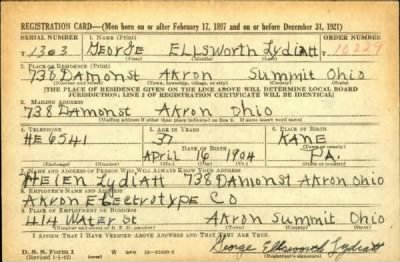 REGISTRATION CARD—(Men born on or after February 17, 1897 and on or before December 31, 1921)
SERIAL NUMBER 1. NAME (Print) ORDER NUMBER
T 1303 George Ellsworth Lydiatt 10229
(First) (Middle) (Last)
2. PLACE OF RESIDENCE (Print)
738 Damon St Akron Summit Ohio
(Number and street) (Town, township, village, or city) (County) (State)
[THE PLACE OF RESIDENCE GIVEN ON THE LINE ABOVE WILL DETERMINE LOCAL BOARD
JURISDICTION; LINE 2 OF REGISTRATION CERTIFICATE WILL BE IDENTICAL]
3. MAILING ADDRESS
738 Damon St Akron Ohio
[Mailing address if other than place indicated on line 2. If same insert word same]
4. TELEPHONE 5. AGE IN YEARS 6. PLACE OF BIRTH
HE 6541 37 KANE
DATE OF BIRTH (Town or county)
April 16 1904 PA.
(Exchange) (Number) (Mo.) (Day) (Yr.) (State or country)
7. NAME AND ADDRESS OF PERSON WHO WILL ALWAYS KNOW YOUR ADDRESS
Helen Lydiatt 738 Damon St Akron Ohio
8. EMPLOYER'S NAME AND ADDRESS
Akron Electrotype Co
9. PLACE OF EMPLOYMENT OR BUSINESS
414 Water St Akron Summit Ohio
(Number and street or R. F. D. number) (Town) (County) (State)
I AFFIRM THAT I HAVE VERIFIED ABOVE ANSWERS AND THAT THEY ARE TRUE.
D. S. S. Form 1
(Revised 1-1-42) (over) George Ellsworth Lydiatt
(Registrant's signature)